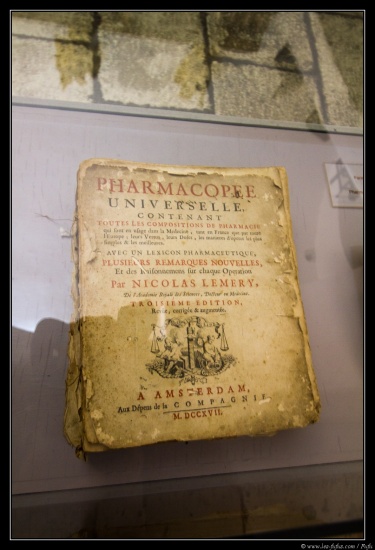 PHARMACOPÉE
UNIVERSELLE,
CONTENANT
TOUTES LES COMPOSITIONS DE PHARMACIE
qui sont en usage dans la Medecine, tant en France que par toute
l'Europe; leurs Vertus, leurs Doses, les manieres d'operer les plus
simples & les meilleures.
AVEC UN LEXICON PHARMACEUTIQUE,
PLUSIEURS REMARQUES NOUVELLES,
Et des Raisonnemens sur chaque Operation
Par NICOLAS LEMERY,
De l'Academie Royale des Sciences, Docteur en Medecine.
TROISIEME EDITION,
Revûe, corrigée & augmentée.
A AMSTERDAM,
Aux Dépens de la COMPAGNIE
M. DCCXVII.